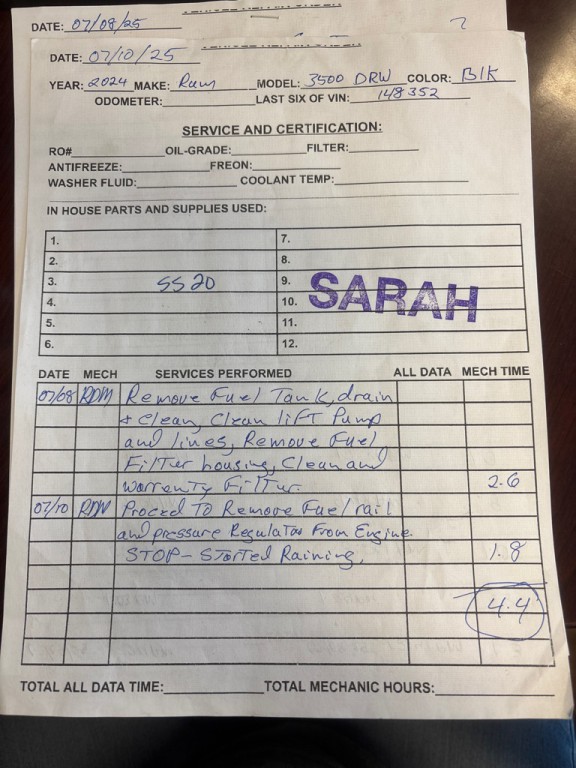 DATE: 07/08/25
DATE: 07/10/25
YEAR: 2024 MAKE: Ram MODEL: 3500 DRW COLOR: Blk
ODOMETER: LAST SIX OF VIN: 148352
SERVICE AND CERTIFICATION:
RO# OIL-GRADE: FILTER:
ANTIFREEZE: FREON:
WASHER FLUID: COOLANT TEMP:
IN HOUSE PARTS AND SUPPLIES USED:
1. 7.
2. 8.
3. SS20 9.
4. 10. SARAH
5. 11.
6. 12.
DATE MECH SERVICES PERFORMED ALL DATA MECH TIME
07/08 RDM Remove Fuel Tank, drain
+ Clean, Clean lift Pump
and lines, Remove Fuel
Filtur housing, Clean and
warrenty Filtur. 2.6
07/10 RDM Proced To Remove Fuel rail
and pressure Regulator From Engine.
STOP - Started Raining, 1.8
4.4
TOTAL ALL DATA TIME: TOTAL MECHANIC HOURS: